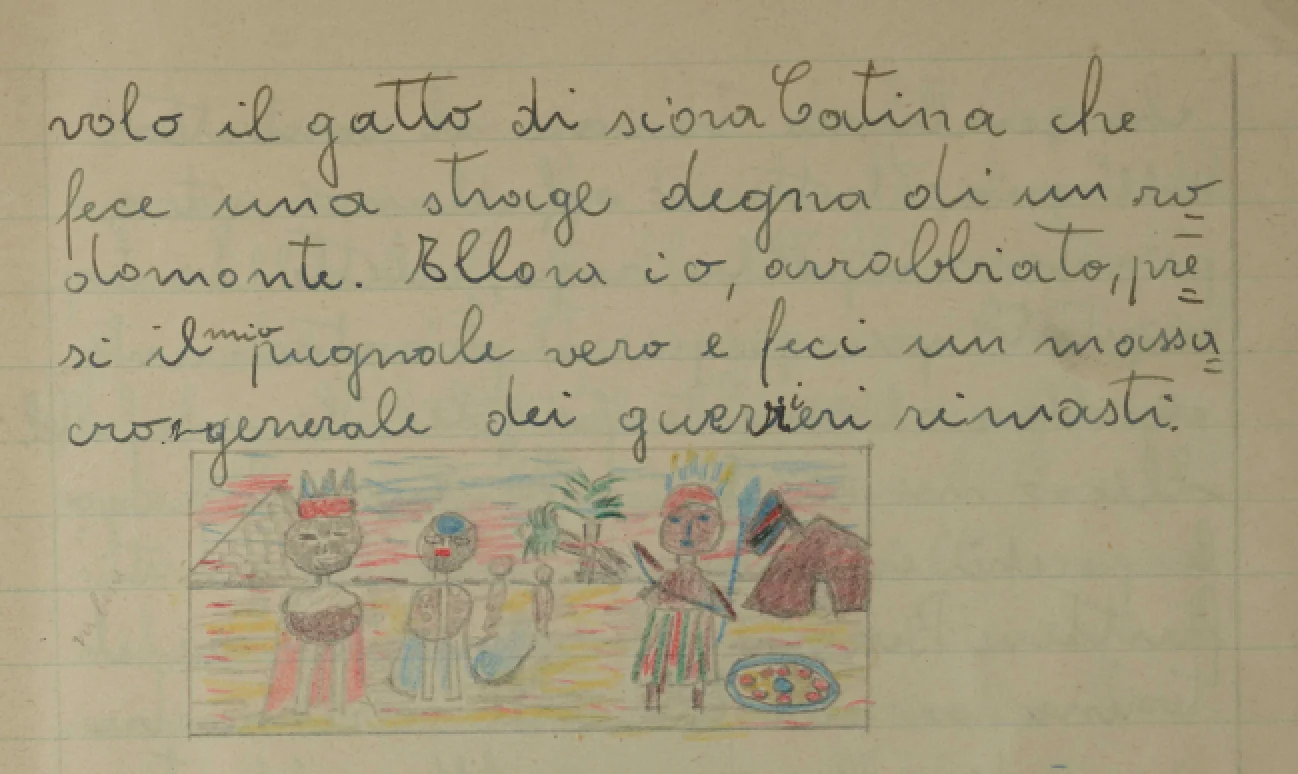 volo il gatto di siora Catina che
fece una strage degna di un ro=
domonte. Allora io, arrabbiato, pre=
si il mio pugnale vero e feci un massa=
cro generale dei guerrieri rimasti.